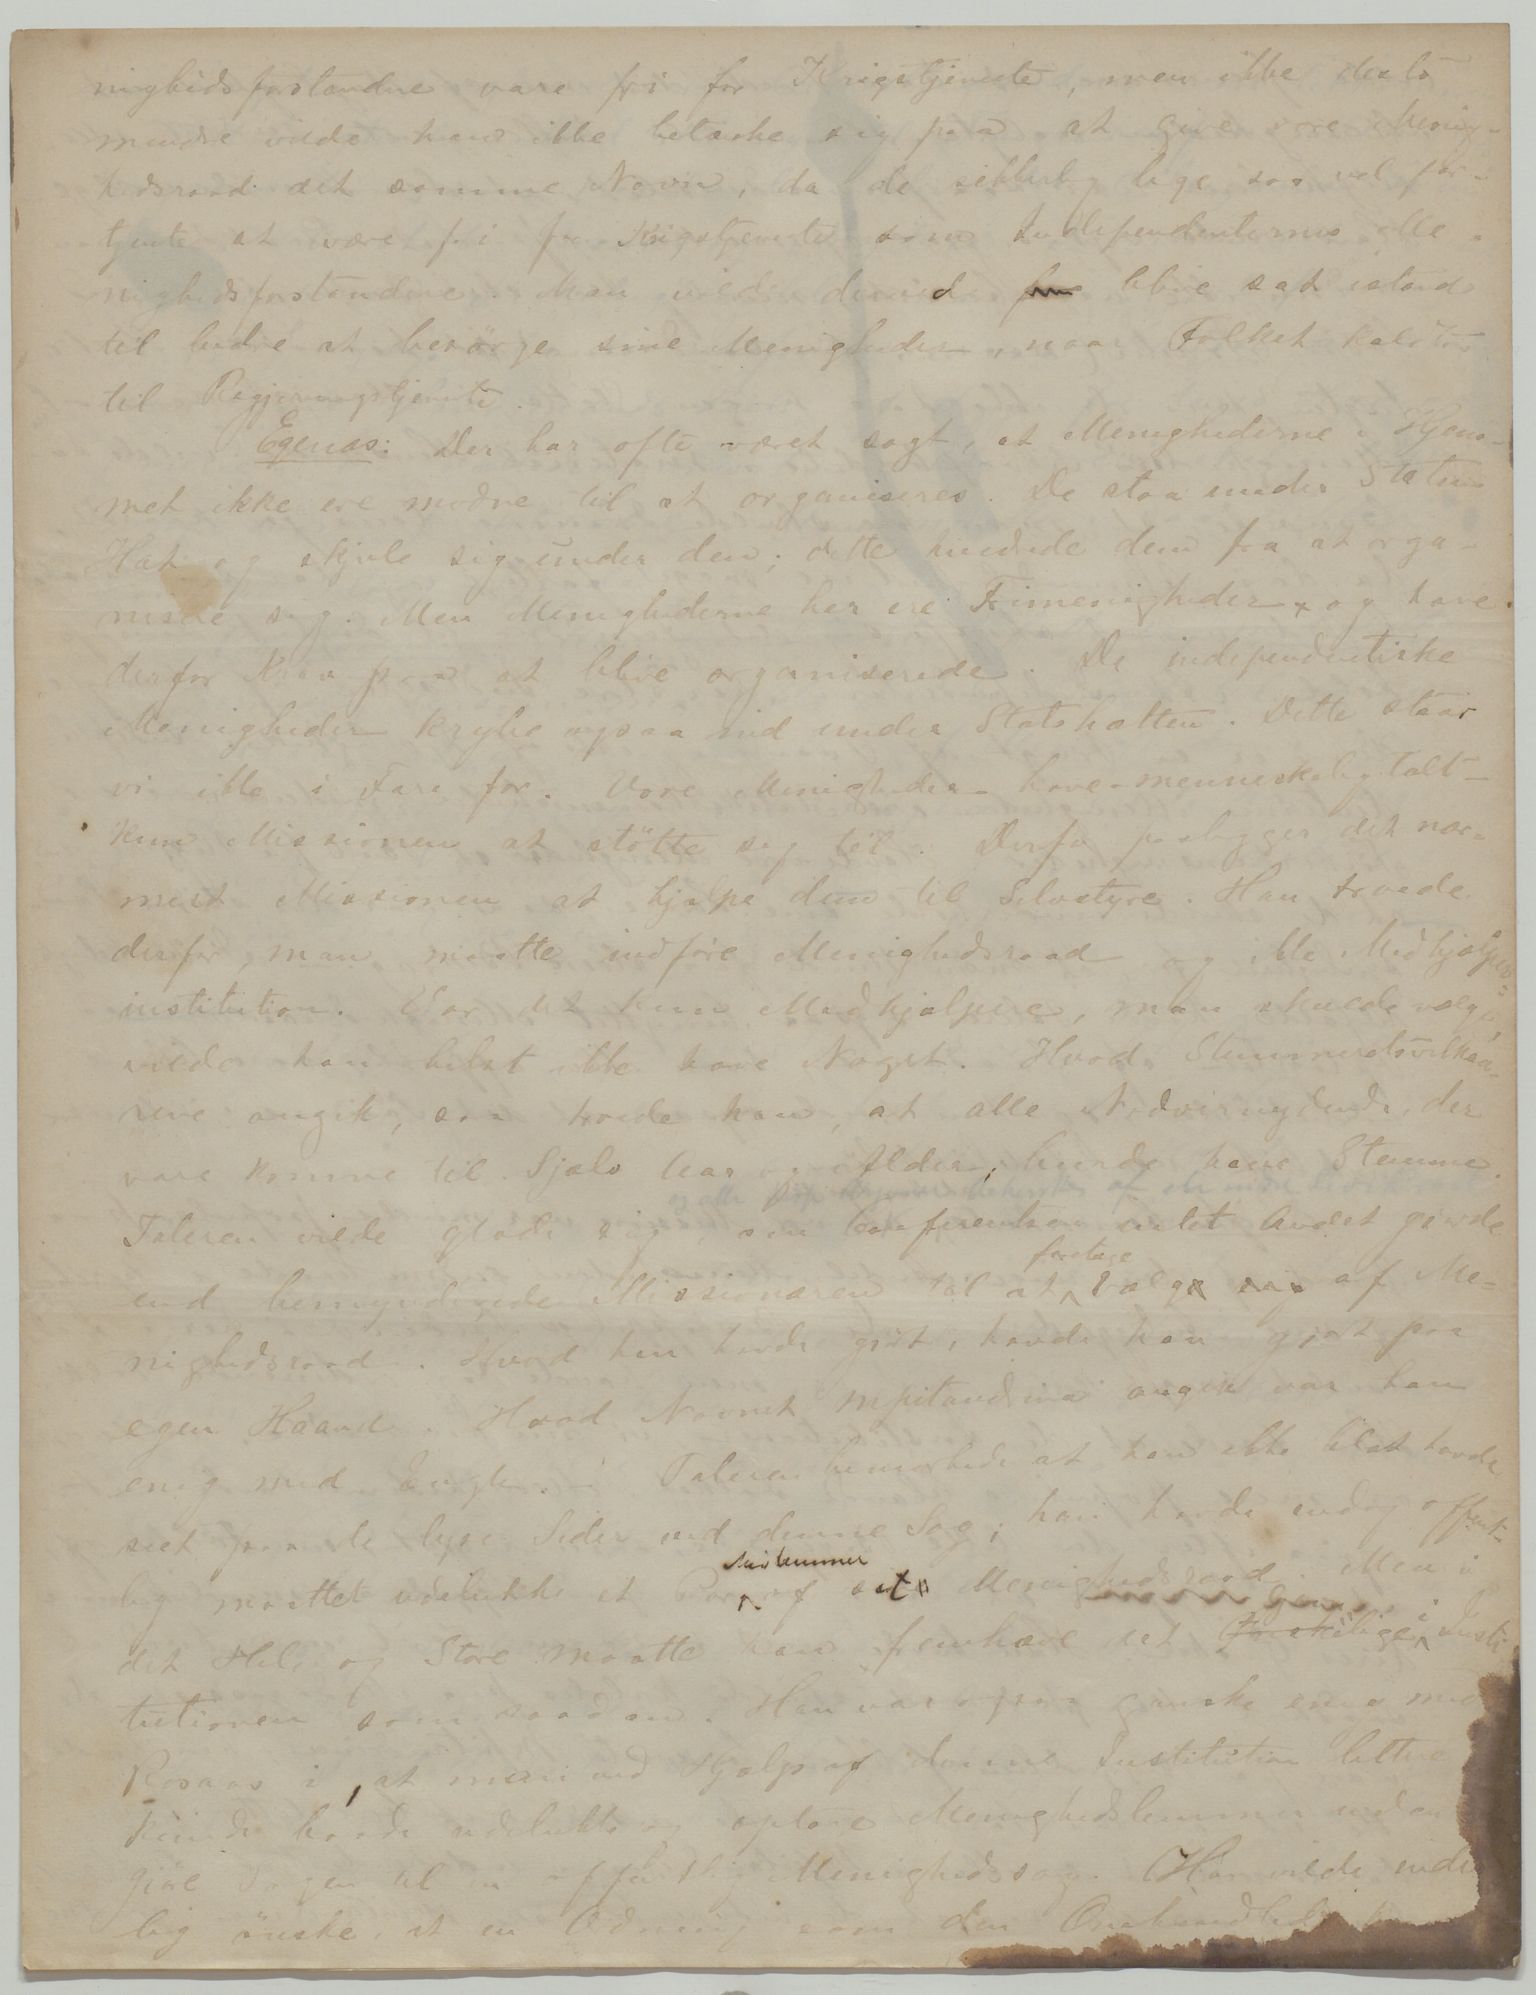 nighedsforstandere vare fri for Krigstjeneste, men ikke desto
mindre vilde han ikke betænke sig paa at give vore Menig-
hedsraad det samme Navn, da de sikkerlig lige saa vel for-
tjente at være fri for Krigstjeneste som Independenternes Me-
nighedsforstandere. Man vilde derved blive sat istand
til bedre at besørge sine Menigheder, naar Folket kaldtes
til Regjeringstjeneste.
Egenæs: Der har ofte været sagt, at Menighederne i Hjem-
met ikke ere modne til at organiseres. De staa under Statens
Hat og skjule sig under den; dette hindrede dem fra at orga-
nisere sig. Men Menighederne her ere Frimenigheder og have
derfor Krav paa at blive organiserede. De independentiske
Menigheder krybe ogsaa ind under Statshatten. Dette staar
vi ikke i Fare for. Vore Menigheder have - menneskelig talt -
kun Missionen at støtte sig til. Derfor paaligger det nær-
mest Missionen at hjælpe dem til Selvstyre. Han troede
derfor, man maatte indføre Menighedsraad og ikke Medhjælper-
institution. Var det kun Medhjælpere, man skulde vælge,
vilde han helst ikke have Noget. Hvad Stemmeretsvilkaa-
rene angik, saa troede han, at alle Nadvernydende, der
vare komne til Skjels Aar og Alder, burde have Stemme.
Taleren vilde glæde sig, om Conferentsen intet Andet gjorde
end bemyndigede Missionæren til at foretage Valg af Me-
nighedsraad. Hvad han havde gjort, havde han gjort paa
egen Haand. Hvad Navnet mpitandrina angik var han
enig med Engh. Taleren bemærkede at han ikke blot havde
seet paa de lyse Sider ved denne Sag; han havde endog offent-
lig maattet udelukke et Par Medlemmer af sit Menighedsraad. Men i
det Hele og Store maatte han fremhæve det Gavnlige i Insti-
tutionen som saadan. Han var ogsaa ganske enig med
Rosaas i, at man ved Hjælp af denne Institution lettere
kunde baade udelukke og optage Menighedslemmer uden
gjøre Sagen til en offentlig Menighedssag. Han vilde inder-
lig ønske, at en Ordning som den Omhandlede